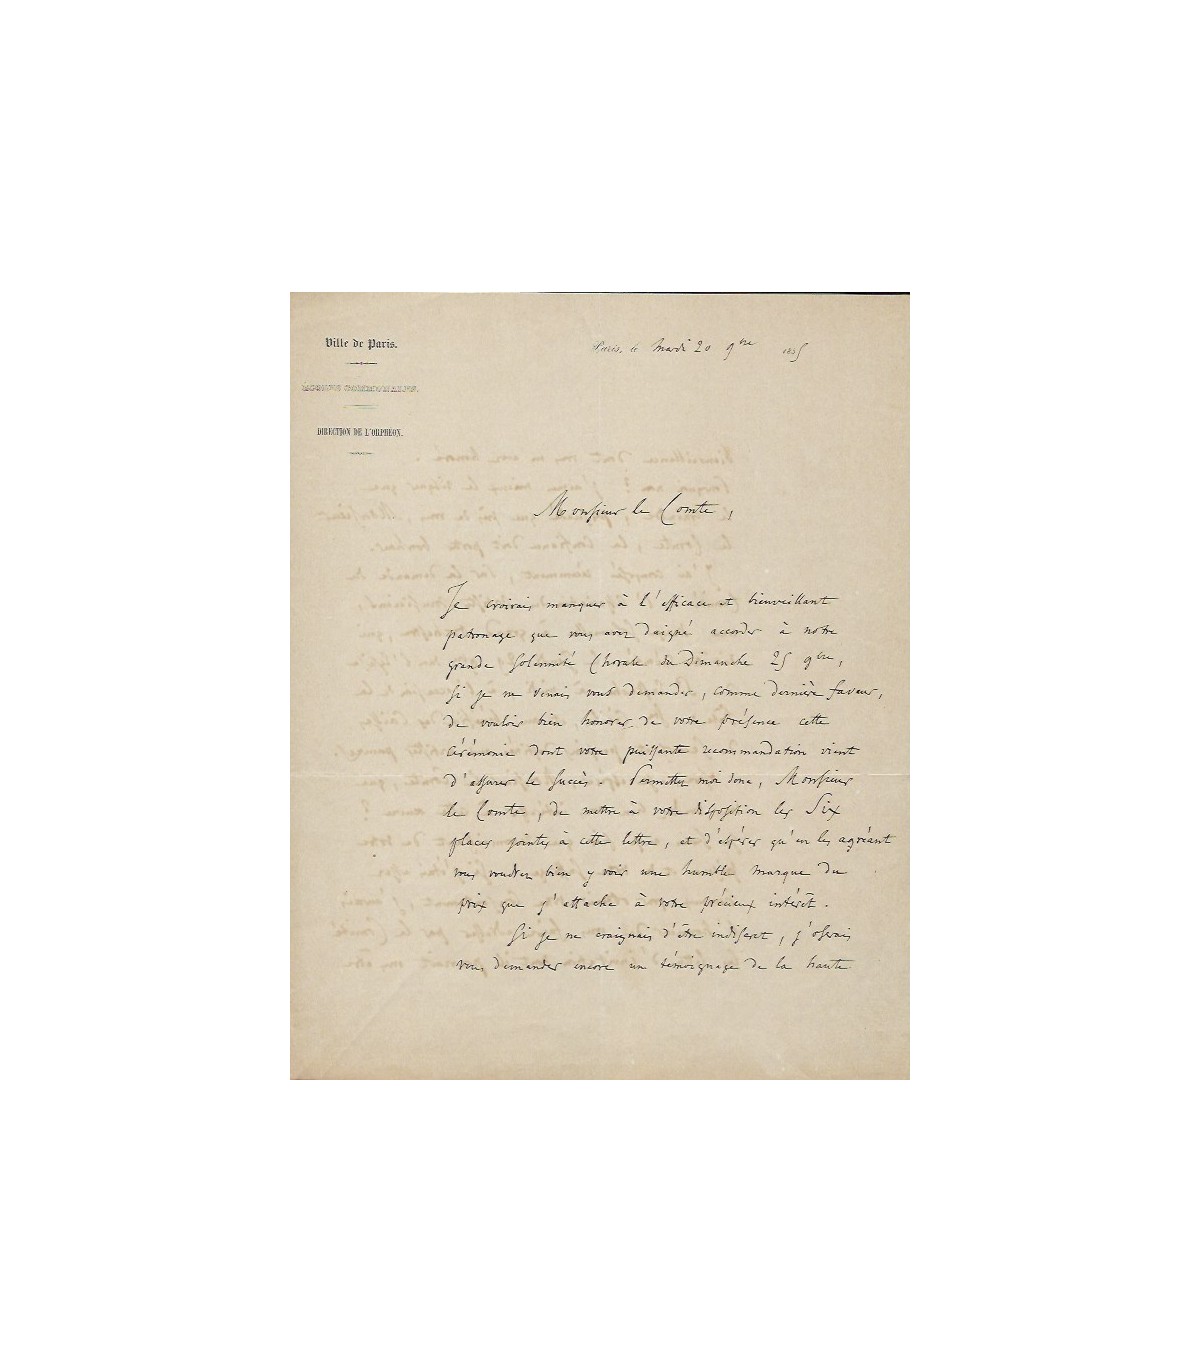 Ville de Paris.
Paris, le Mardi 20 9bre 1855
ECOLES COMMUNALES.
DIRECTION DE L'ORPHEON.
Monsieur le Comte,
Je croirais manquer à l'efficace et bienveillant
patronage que vous avez daigné accorder à notre
grande Solennité Chorale du Dimanche 25 9bre,
si je ne venais vous demander, comme dernière faveur,
de vouloir bien honorer de votre présence cette
cérémonie dont votre puissante recommandation vient
d'assurer le succès. Permettez moi donc, Monsieur
le Comte, de mettre à votre disposition les Six
places jointes à cette lettre, et d'espérer qu'en les agréant
vous voudrez bien y voir une humble marque du
prix que j'attache à votre précieux intérêt.
Si je ne craignais d'être indiscret, j'oserais
vous demander encore un témoignage de la haute